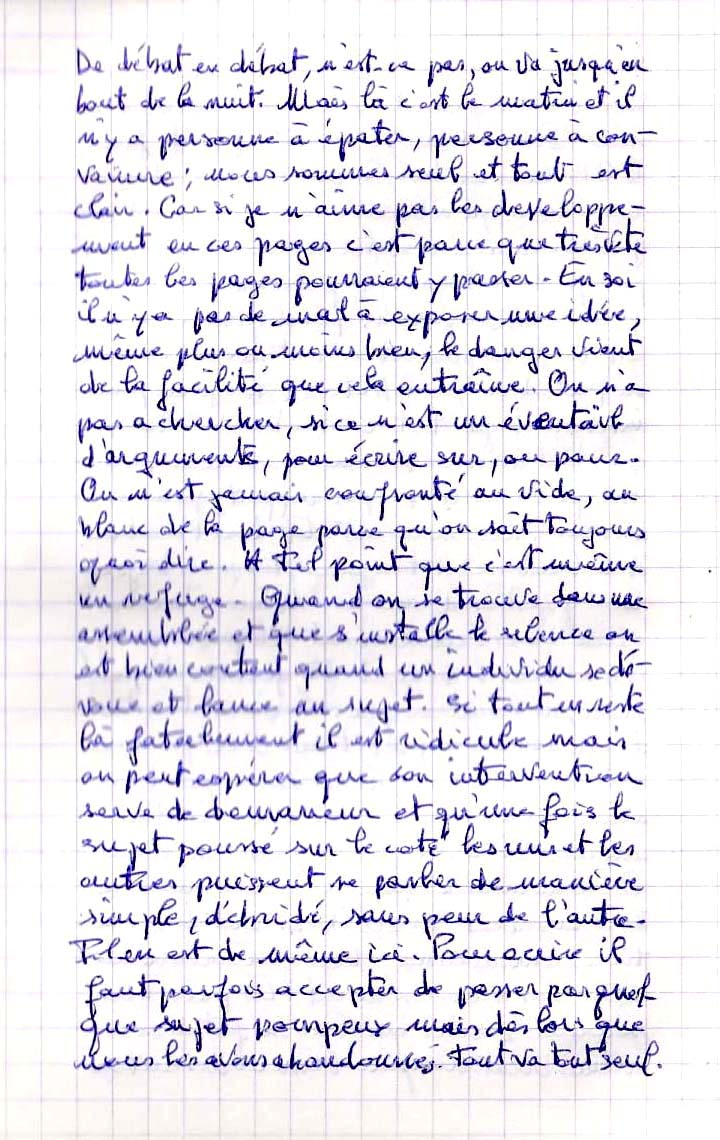 De débat en débat, n'est-ce pas, on va jusqu'au
bout de la nuit. Mais là c'est le matin et il
n'y a personne à épater, personne à con-
vaincre ; nous sommes seul et tout est
clair. Car si je n'aime pas les développe-
ment en ces pages c'est parce que très vite
toutes les pages pourraient y passer. En soi
il n'y a pas de mal à exposer une idée,
même plus ou moins bien, le danger vient
de la facilité que cela entraîne. On n'a
pas a chercher, si ce n'est un éventail
d'arguments, pour écrire sur, ou pour.
On n'est jamais confronté au vide, au
blanc de la page parce qu'on sait toujours
quoi dire. A tel point que c'est même
un refuge. Quand on se trouve dans une
assemblée et que s'installe le silence on
est bien content quand un individu se dé-
voue et lance un sujet. Si tout en reste
là fatalement il est ridicule mais
on peut espérer que son intervention
serve de démarreur et qu'une fois le
sujet poussé sur le coté les uns et les
autres puissent se parler de manière
simple, débridé, sans peur de l'autre.
Il en est de même ici. Pour écrire il
faut parfois accepter de passer par quel-
que sujet pompeux mais dès lors que
nous les avons abandonnés, tout va tout seul.